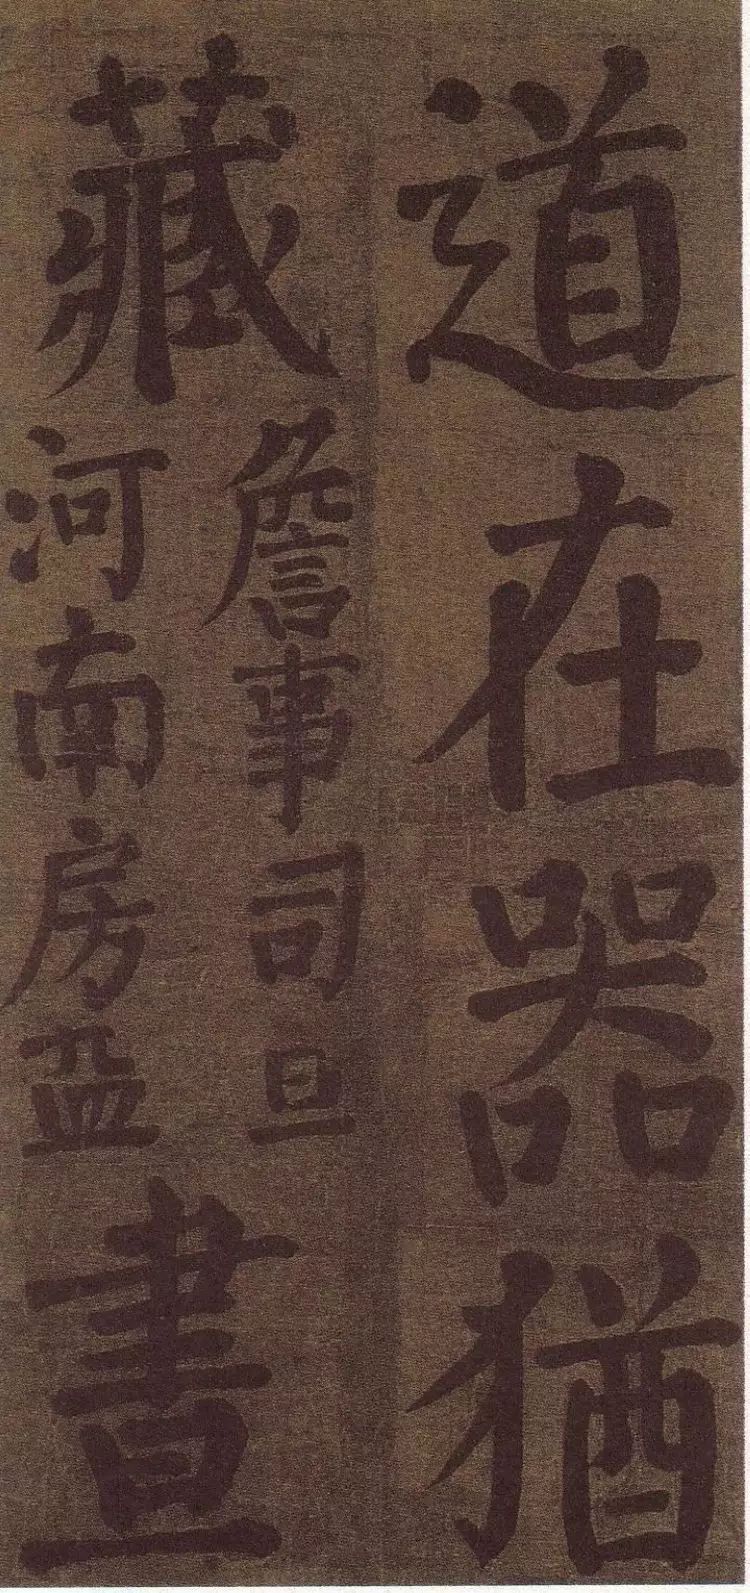 道在器猶
藏
詹事司旦
河南房盈
晝